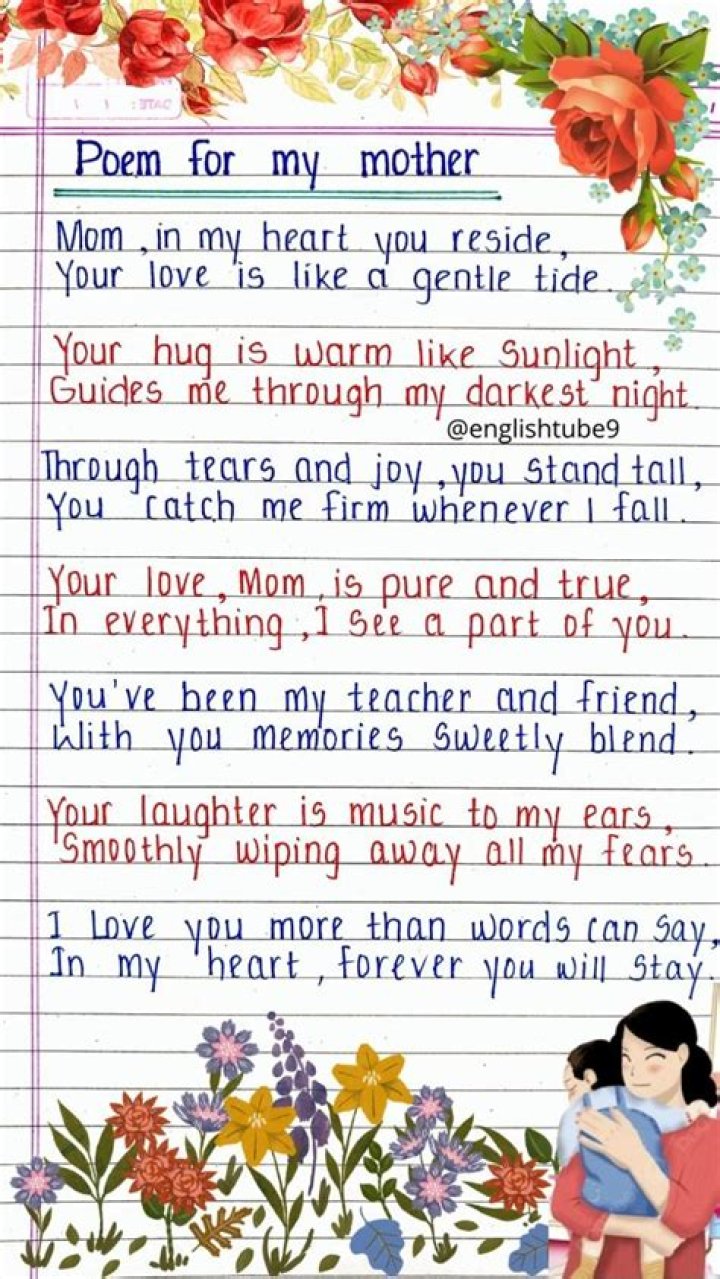 Poem for my mother
Mom, in my heart you reside,
Your love is like a gentle tide.
Your hug is warm like Sunlight,
Guides me through my darkest night.
@englishtube9
Through tears and joy, you stand tall,
You catch me firm whenever I fall.
Your love, Mom, is pure and true,
In everything, I See a part of you.
You've been my teacher and friend,
With you memories Sweetly blend.
Your laughter is music to my ears,
Smoothly wiping away all my fears.
I Love you more than words can Say,
In my heart, forever you will Stay.